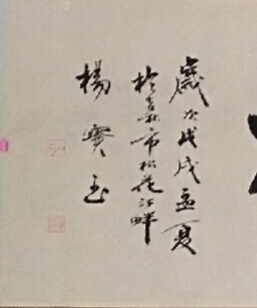 歲次戊戌孟夏
於吉林市松花江畔
楊寶玉